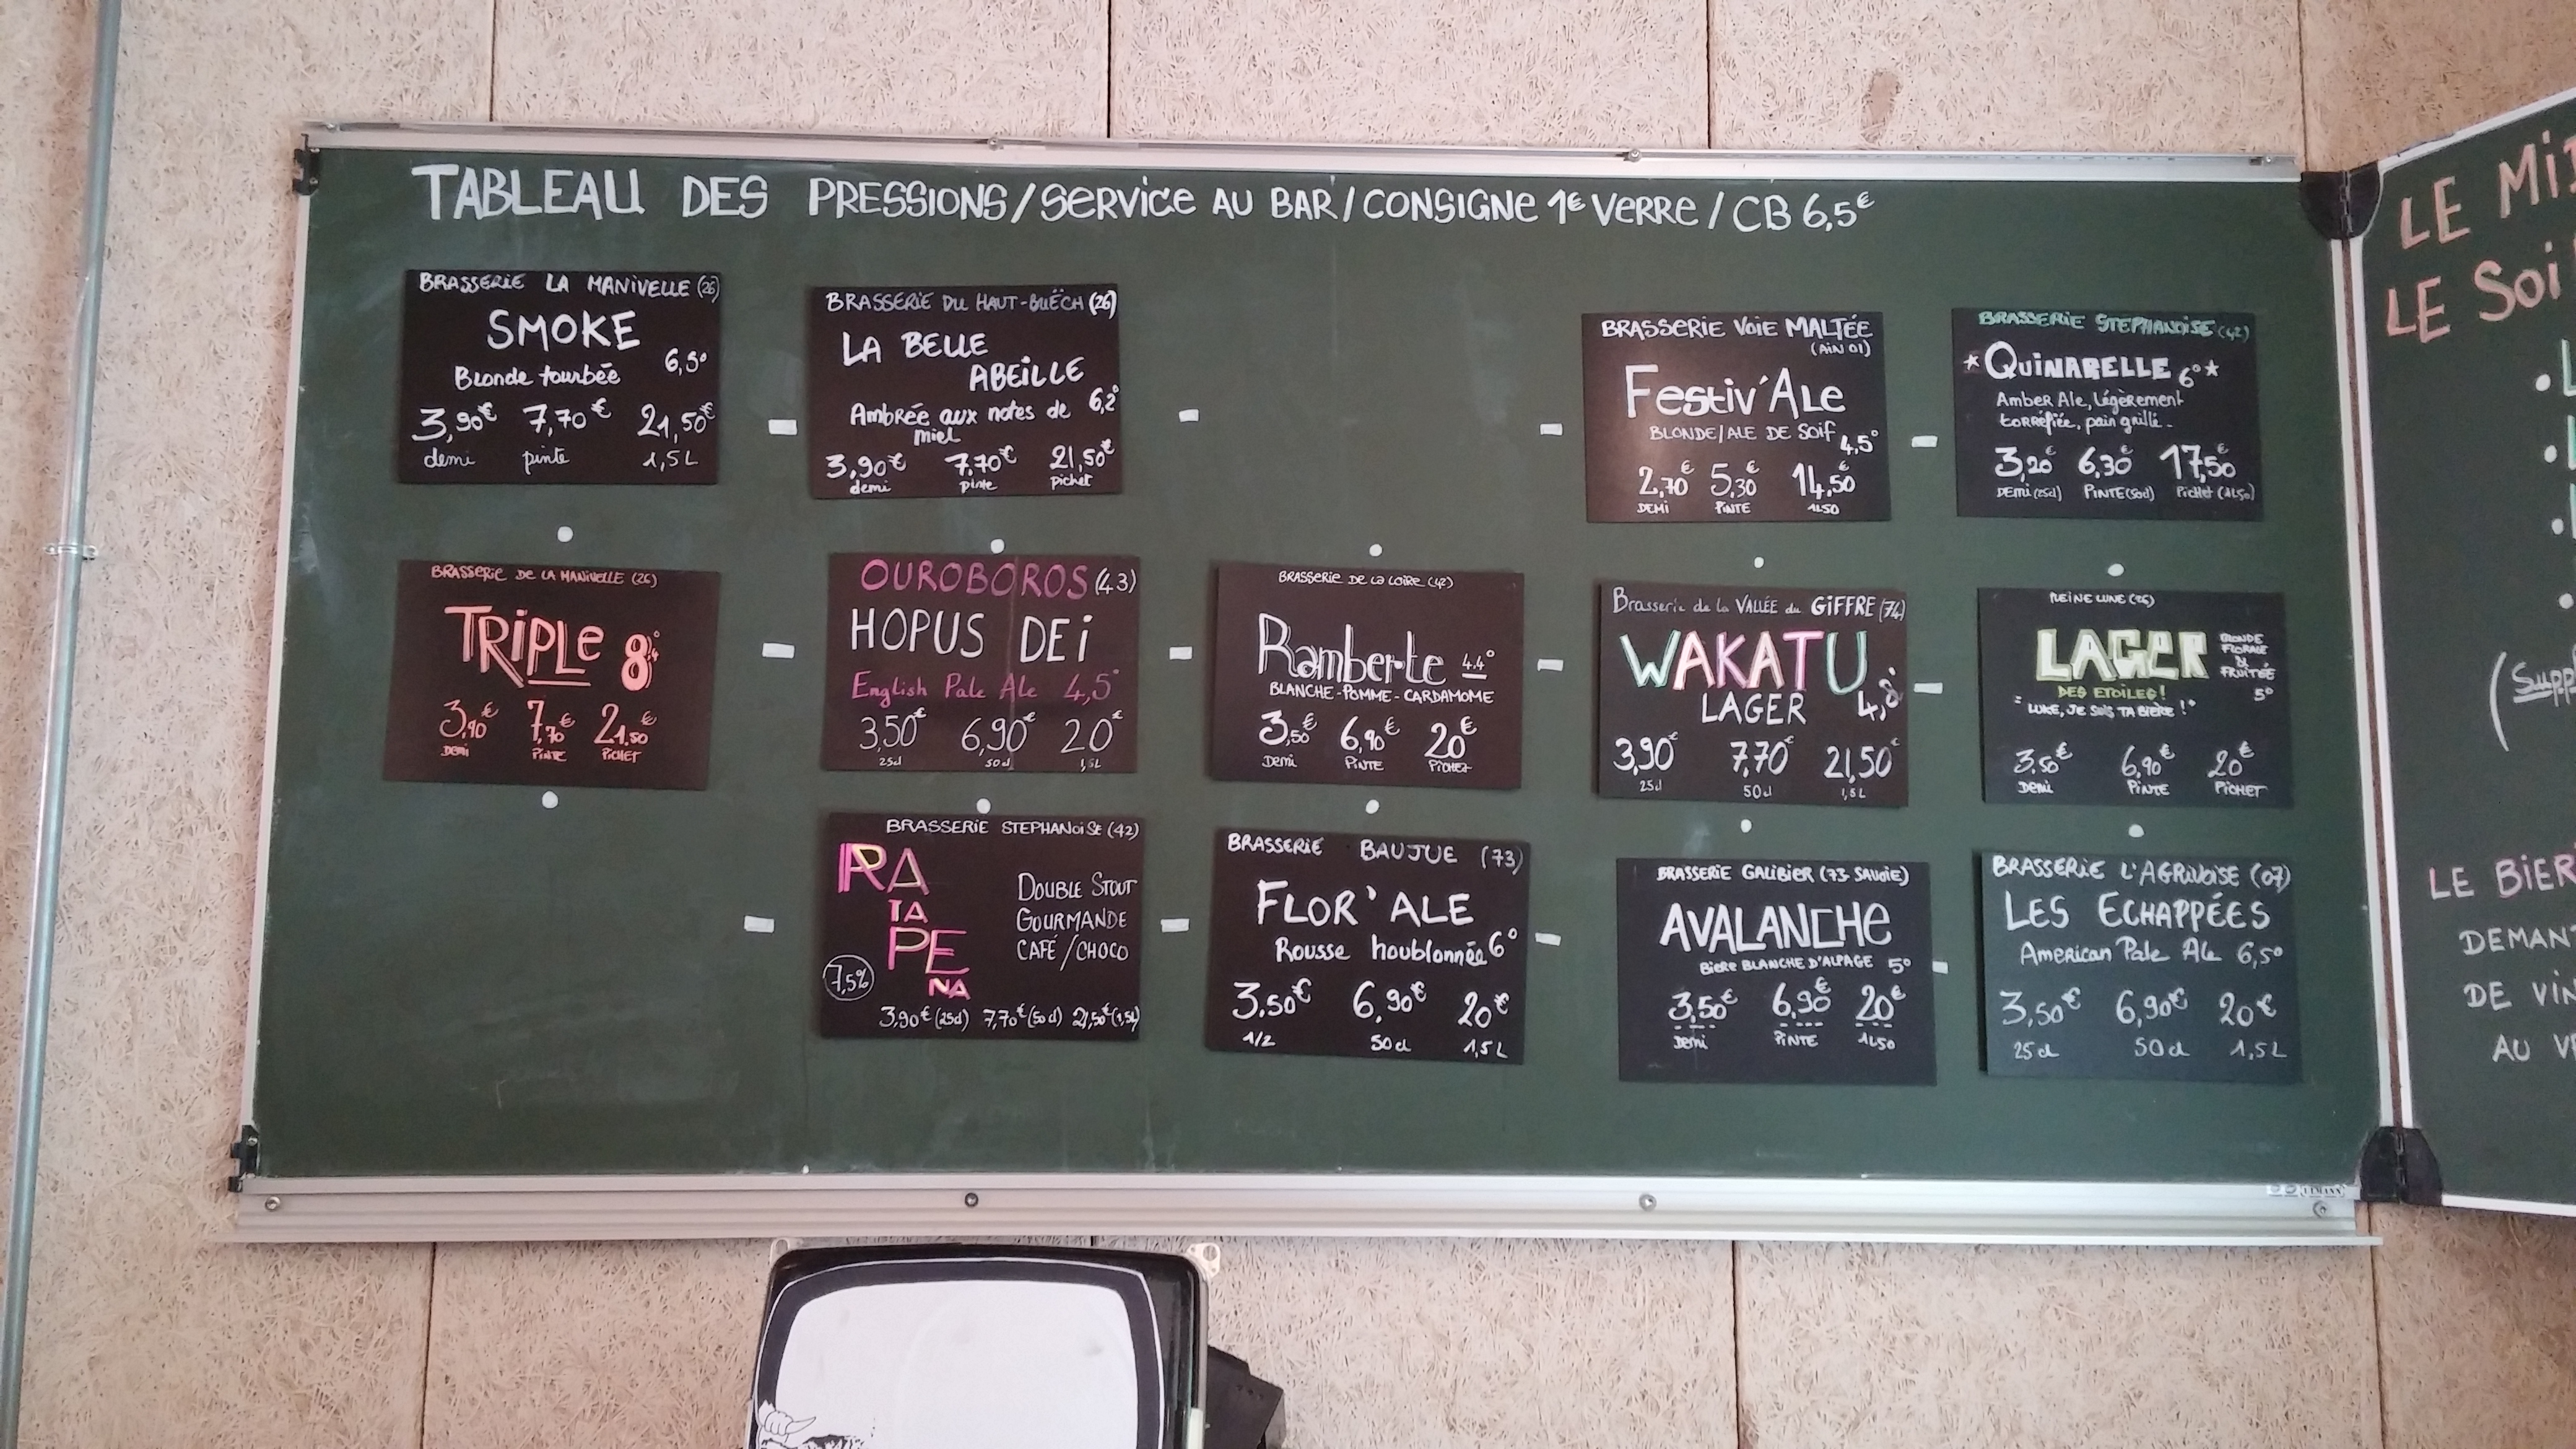 TABLEAU DES PRESSIONS/SERVICE AU BAR/CONSIGNE 1€ VERRE/CB 6,5€
BRASSERIE LA MANIVELLE (26)
SMOKE
6,5°
Blonde tourbée
3,90€ 7,70€ 21,50€
demi pinte 1,5L
BRASSERIE DU HAUT-BUËCH (26)
LA BELLE
ABEILLE
6,2°
Ambrée aux notes de
miel
3,90€ 7,70€ 21,50€
demi pinte pichet
BRASSERIE VOIE MALTÉE
(AIN 01)
Festiv'ALe
BLONDE/ALE DE SOIF 4,5°
2,70€ 5,30€ 14,50€
DEMI PINTE 1L50
BRASSERIE STEPHANOISE (42)
*QUINARELLE 6°*
Amber Ale, Légèrement
torréfiée, pain grillé.
3,20€ 6,30€ 17,50€
DEMI (25cl) PINTE (50cl) Pichet (1L50)
BRASSERIE DE LA MANIVELLE (26)
TRIPLE 8,4°
3,90€ 7,70€ 21,50€
DEMI PINTE PICHET
OUROBOROS (43)
HOPUS DEi
English Pale Ale 4,5°
3,50€ 6,90€ 20€
25cl 50cl 1,5L
BRASSERIE DE LA LOIRE (42)
Ramberte 4.4°
BLANCHE-POMME-CARDAMOME
3,50€ 6,90€ 20€
Demi PINTE PICHET
Brasserie de la VALLÉE du GIFFRE (74)
WAKATU
LAGER 4,8°
3,90€ 7,70€ 21,50€
25cl 50cl 1,5L
PLEINE LUNE (26)
LAGER
BLONDE
FLORALE
&
FRUITÉE
5°
DES ETOILES!
"LUKE, JE SUIS TA BIÈRE!"
3,50€ 6,90€ 20€
DEMI PINTE PICHET
BRASSERIE STEPHANOISE (42)
RA
TA
PE
NA
DOUBLE STOUT
GOURMANDE
CAFÉ/CHOCO
7,5%
3,90€ (25cl) 7,70€ (50cl) 21,50€ (1,5L)
BRASSERIE BAUJUE (73)
FLOR'ALE
Rousse houblonnée 6°
3,50€ 6,90€ 20€
1/2 50cl 1,5L
BRASSERIE GALIBIER (73 SAVOIE)
AVALANCHE
BIERE BLANCHE D'ALPAGE 5°
3,50€ 6,90€ 20€
Demi PINTE 1L50
BRASSERIE L'AGRIVOISE (07)
LES ECHAPPÉES
American Pale Ale 6,5°
3,50€ 6,90€ 20€
25cl 50cl 1,5L
ULMANN
LE
LE
LE
DE
AU